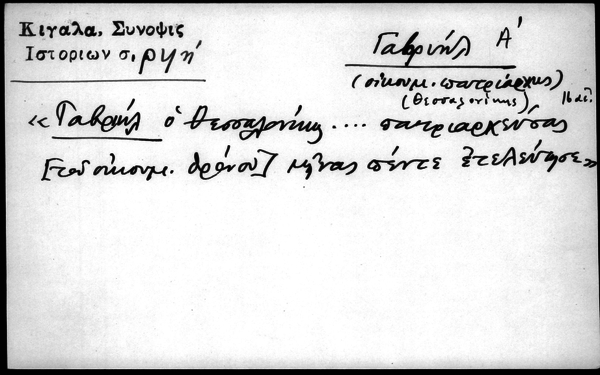 Κιγαλα, Συνοψις
Ιστοριων σ. ρμη'
Γαβριήλ Α'
(οἰκουμ. πατριάρχης)
(Θεσσαλονίκης) 16 αἰ.
«Γαβριήλ ὁ Θεσσαλονίκης .... πατριαρχεύσας
[τοῦ οἰκουμ. θρόνου] μῆνας πέντε ἐτελεύτησε»